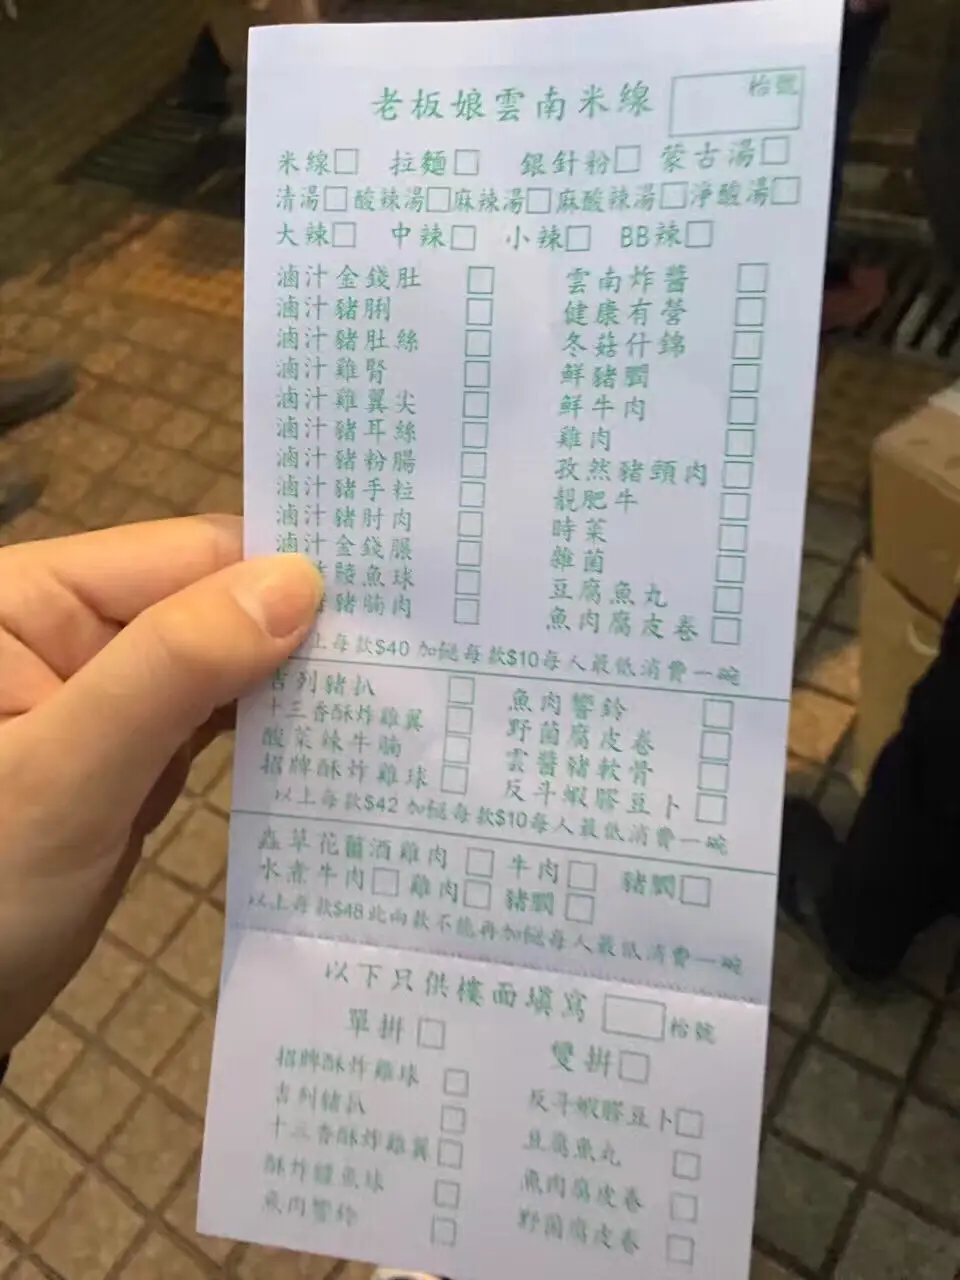 老板娘雲南米線 枱號
米線□ 拉麵□ 銀針粉□ 蒙古湯□
清湯□ 酸辣湯□ 麻辣湯□ 麻酸辣湯□ 淨酸湯□
大辣□ 中辣□ 小辣□ BB辣□
滷汁金錢肚□ 雲南炸醬□
滷汁豬脷□ 健康有營□
滷汁豬肚絲□ 冬菇什錦□
滷汁雞腎□ 鮮豬膶□
滷汁雞翼尖□ 鮮牛肉□
滷汁豬耳絲□ 雞肉□
滷汁豬粉腸□ 孜然豬頸肉□
滷汁豬手粒□ 靚肥牛□
滷汁豬肘肉□ 時菜□
滷汁金錢𦟌□ 雜菌□
鯪魚球□ 豆腐魚丸□
豬腩肉□ 魚肉腐皮卷□
上每款$40 加餸每款$10每人最低消費一碗
吉列豬扒□ 魚肉響鈴□
十三香酥炸雞翼□ 野菌腐皮卷□
酸菜辣牛腩□ 雲醬豬軟骨□
招牌酥炸雞球□ 反斗蝦膠豆卜□
以上每款$42 加餸每款$10每人最低消費一碗
蟲草花薑酒雞肉□ 牛肉□ 豬膶□
水煮牛肉□ 雞肉□ 豬膶□
以上每款$48此兩款不能再加餸每人最低消費一碗
以下只供樓面填寫 □枱號
單拼□ 雙拼□
招牌酥炸雞球□ 反斗蝦膠豆卜□
吉列豬扒□ 豆腐魚丸□
十三香酥炸雞翼□ 魚肉腐皮卷□
酥炸鯪魚球□ 野菌腐皮卷□
魚肉響鈴□